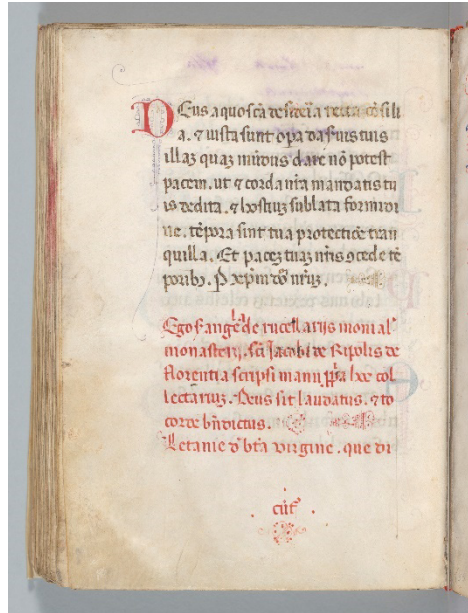 Deus a quo sc̄a desideīa recta cōsili
a. ⁊ iusta sunt op̄a da ſuis tuis
illaꝫ quaꝫ mūdus dare nō potest
pacem. ut ⁊ corda nr̄a mandatis tu
is dedita. ⁊ hostiuꝫ sublata formidi
ne. tēpora sint tua protectiōe tran
quilla. Et paceꝫ tuaꝫ nr̄is ↄcede tē
poribꝫ. P xp̄m dn̄m nr̄uꝫ.
Ego s̄ anḡela de rucellarijs monial̄
monasterij. sc̄i Jacobi de Ripolis de
florentia scripsi manu pp̄a hoc col
lectariuꝫ. Deus sit laudatus. ⁊ to
corde bn̄dictus.
Letanie d̄ bt̄a virgine. que di
cūt̄